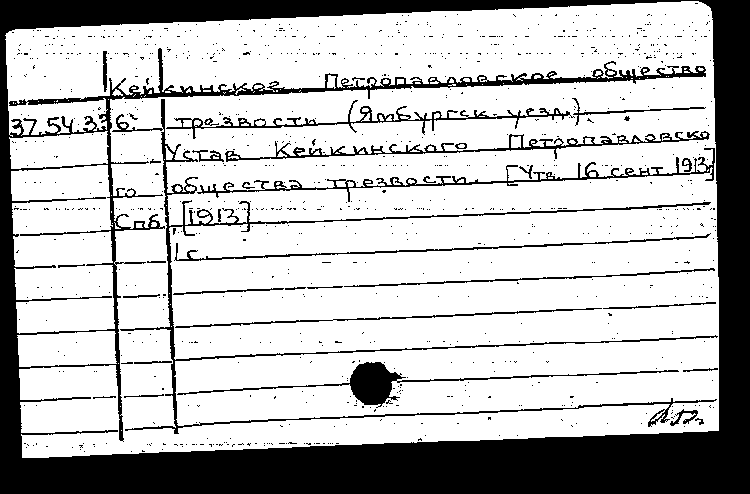 Кейкинское Петропавловское общество
37.54.336. трезвости (Ямбургск. уезд.).
Устав Кейкинского Петропавловско
го общества трезвости. [Утв. 16 сент. 1913]
Спб., [1913]
1 с.